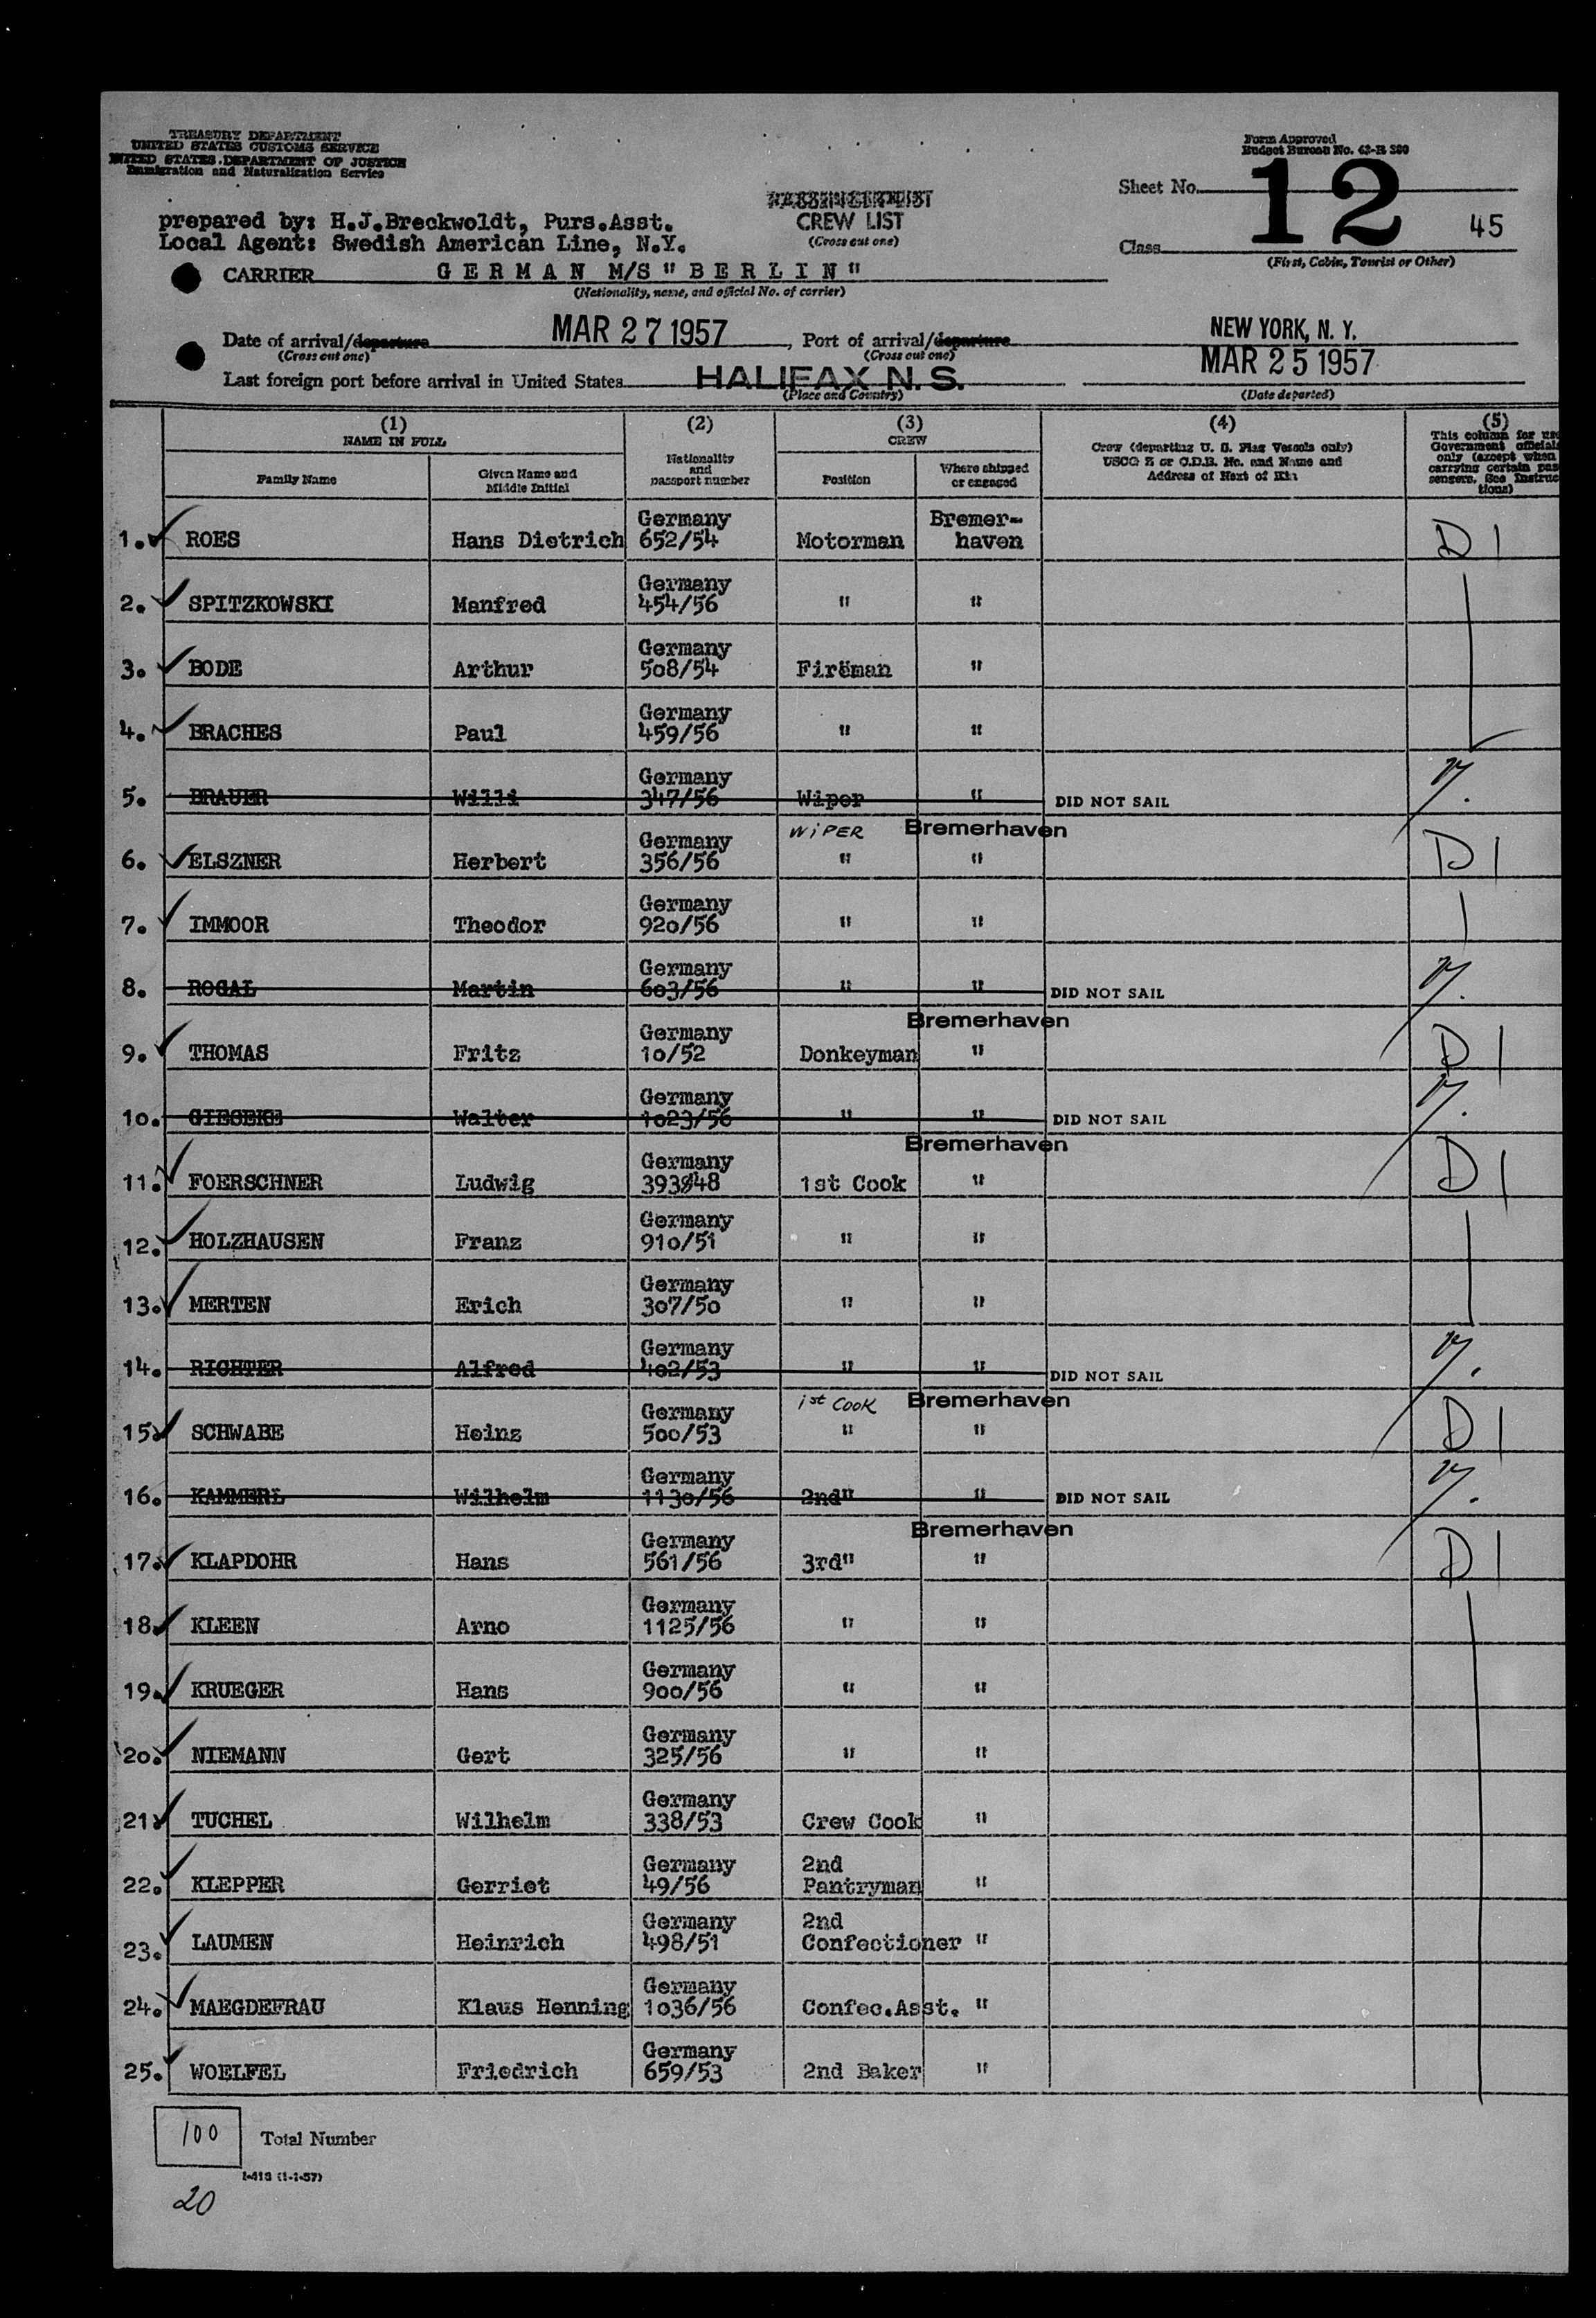 TREASURY DEPARTMENT
UNITED STATES CUSTOMS SERVICE
UNITED STATES DEPARTMENT OF JUSTICE
Immigration and Naturalization Service
Form Approved
Budget Bureau No. 43-R 380
PASSENGER LIST
CREW LIST
(Cross out one)
Sheet No. 12
45
prepared by: H.J.Breckwoldt, Purs.Asst.
Local Agent: Swedish American Line, N.Y.
Class
(First, Cabin, Tourist or Other)
CARRIER G E R M A N M/S " B E R L I N "
(Nationality, name, and official No. of carrier)
Date of arrival/departure MAR 27 1957, Port of arrival/departure NEW YORK, N. Y.
(Cross out one) (Cross out one)
MAR 25 1957
Last foreign port before arrival in United States HALIFAX N. S.
(Place and Country) (Date departed)
(1) (2) (3) (4) (5)
NAME IN FULL
Family Name
Given Name and Middle Initial
Nationality and passport number
CREW
Position
Where shipped or engaged
Crew (departing U. S. Flag Vessels only)
USCG Z or C.D.B. No. and Name and
Address of Next of Kin
This column for use
Government officials
only (except when
carrying certain pas
sengers. See Instruc
tions)
1. ROES Hans Dietrich Germany 652/54 Motorman Bremer-haven D 1
2. SPITZKOWSKI Manfred Germany 454/56 " "
3. BODE Arthur Germany 508/54 Fireman "
4. BRACHES Paul Germany 459/56 " "
5. BRAUER Willi Germany 347/56 Wiper " DID NOT SAIL
6. ELSZNER Herbert Germany 356/56 WIPER " Bremerhaven " D 1
7. IMMOOR Theodor Germany 920/56 " "
8. ROGAL Martin Germany 603/56 " " DID NOT SAIL
9. THOMAS Fritz Germany 10/52 Donkeyman Bremerhaven " D 1
10. GIESEKE Walter Germany 1023/56 " " DID NOT SAIL
11. FOERSCHNER Ludwig Germany 393/48 1st Cook Bremerhaven " D 1
12. HOLZHAUSEN Franz Germany 910/51 " "
13. MERTEN Erich Germany 307/50 " "
14. RICHTER Alfred Germany 402/53 " " DID NOT SAIL
15. SCHWABE Heinz Germany 500/53 1st COOK " Bremerhaven " D 1
16. KAMMERL Wilhelm Germany 1130/56 2nd" " DID NOT SAIL
17. KLAPDOHR Hans Germany 561/56 3rd" Bremerhaven " D 1
18. KLEEN Arno Germany 1125/56 " "
19. KRUEGER Hans Germany 900/56 " "
20. NIEMANN Gert Germany 325/56 " "
21. TUCHEL Wilhelm Germany 338/53 Crew Cook "
22. KLEPPER Gerriet Germany 49/56 2nd Pantryman "
23. LAUMEN Heinrich Germany 498/51 2nd Confectioner "
24. MAEGDEFRAU Klaus Henning Germany 1036/56 Confec.Asst. "
25. WOELFEL Friedrich Germany 659/53 2nd Baker "
100 Total Number
I-418 (1-1-57)
20